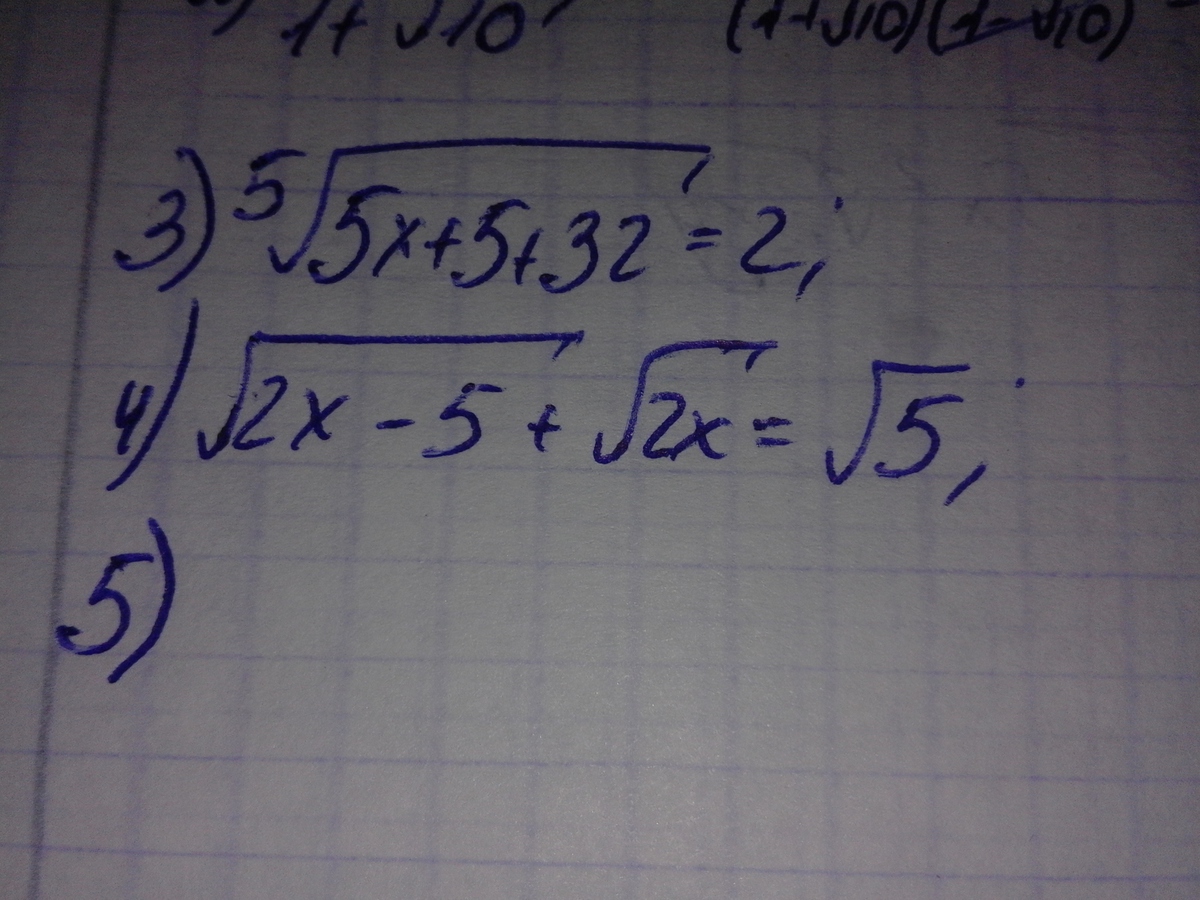 1+√10 (1+√10)(1-√10)
3) ⁵√(5x+5+32) = 2;
4) √(2x-5) + √(2x) = √5;
5)